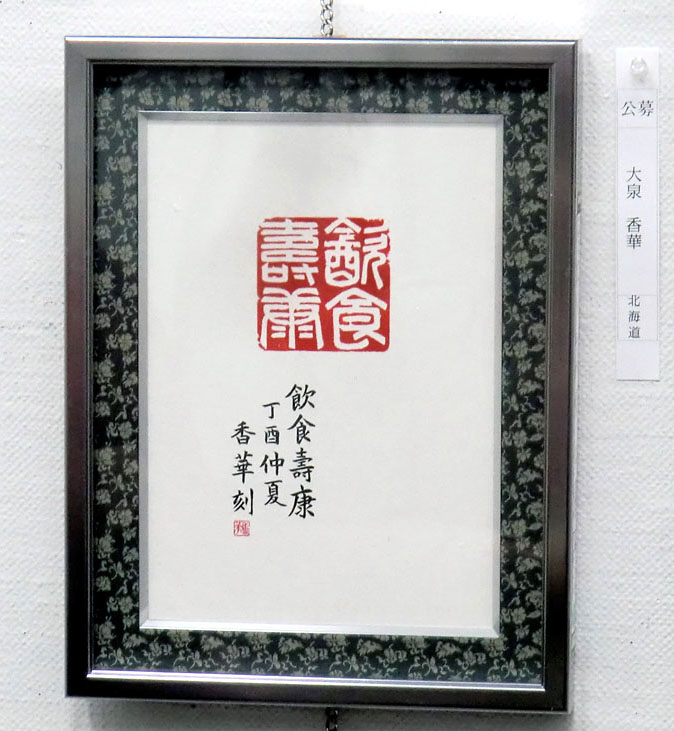 飲食
壽康
飲食壽康
丁酉仲夏
香華刻
公募
大泉 香華
北海道